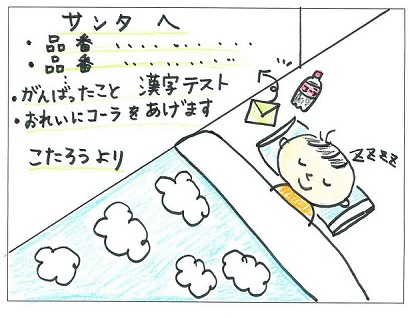 サンタへ
・品番 ‥‥‥‥‥‥
・品番 ‥‥‥‥‥‥
・がんばったこと 漢字テスト
・おれいにコーラをあげます
こたろうより
コーラ
zzzz